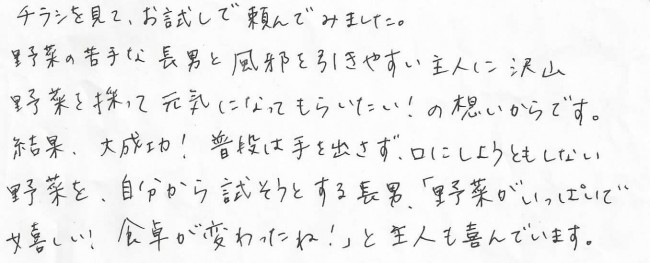 チラシを見て、お試しで頼んでみました。
野菜の苦手な長男と風邪を引きやすい主人に沢山
野菜を採って元気になってもらいたい！の想いからです。
結果、大成功！普段は手を出さず、口にしようともしない
野菜を、自分から試そうとする長男、「野菜がいっぱいで
嬉しい！食卓が変わったね！」と主人も喜んでいます。